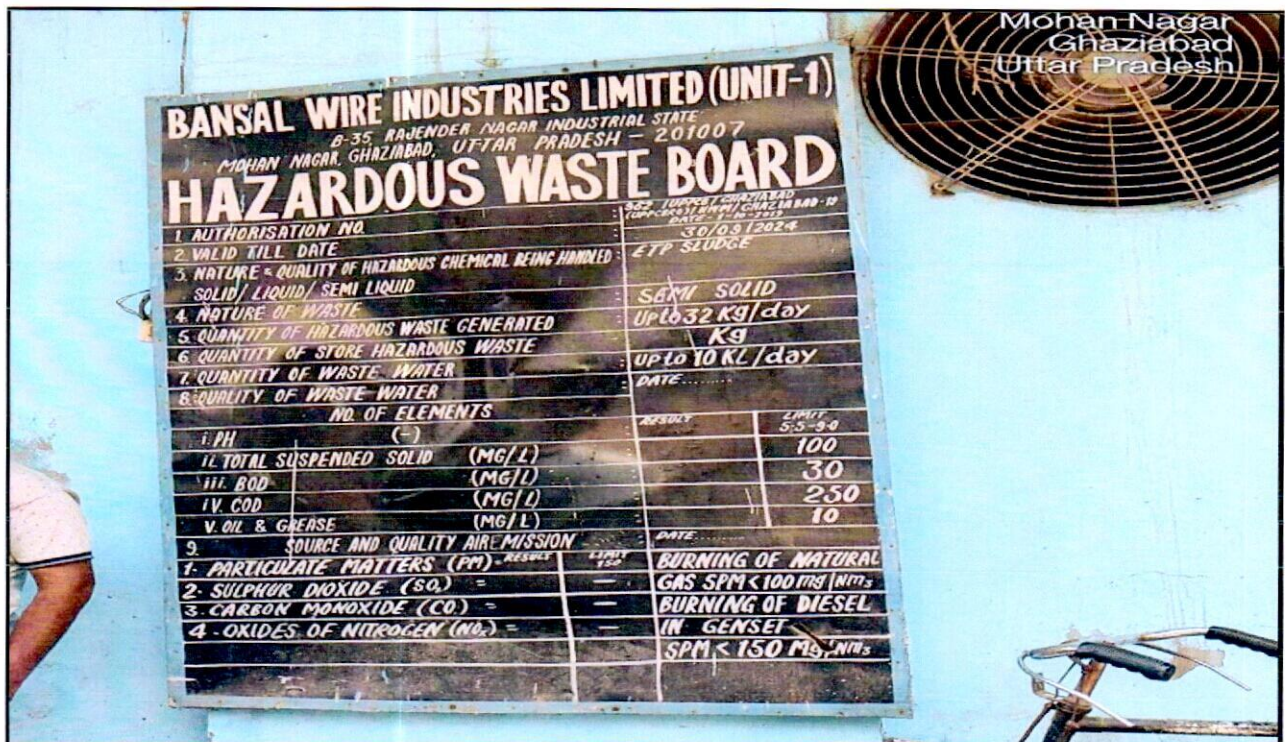 Mohan Nagar
Ghaziabad
Uttar Pradesh
BANSAL WIRE INDUSTRIES LIMITED (UNIT-1)
B-35 RAJENDER NAGAR INDUSTRIAL STATE
MOHAN NAGAR, GHAZIABAD, UTTAR PRADESH - 201007
HAZARDOUS WASTE BOARD
1. AUTHORISATION NO. :
DATE
2. VALID TILL DATE : 30/09/2024
3. NATURE & QUALITY OF HAZARDOUS CHEMICAL BEING HANDLED : ETP SLUDGE
SOLID/ LIQUID/ SEMI LIQUID
4. NATURE OF WASTE : SEMI SOLID
5. QUANTITY OF HAZARDOUS WASTE GENERATED : Upto 32 Kg/day
6. QUANTITY OF STORE HAZARDOUS WASTE : Kg
7. QUANTITY OF WASTE WATER : Upto 10 KL/day
8. QUALITY OF WASTE WATER : DATE........
NO. OF ELEMENTS RESULT LIMIT
i. PH (-) 5.5-9.0
ii. TOTAL SUSPENDED SOLID (MG/L) 100
iii. BOD (MG/L) 30
iV. COD (MG/L) 250
V. OIL & GREASE (MG/L) 10
9. SOURCE AND QUALITY AIR EMISSION DATE........
1. PARTICULATE MATTERS (PM) = RESULT LIMIT 150 BURNING OF NATURAL
2. SULPHUR DIOXIDE (SO₂) = — GAS SPM < 100 mg/Nm₃
3. CARBON MONOXIDE (CO) = — BURNING OF DIESEL
4. OXIDES OF NITROGEN (NOx) = — IN GENSET
SPM < 150 Mg/Nm₃